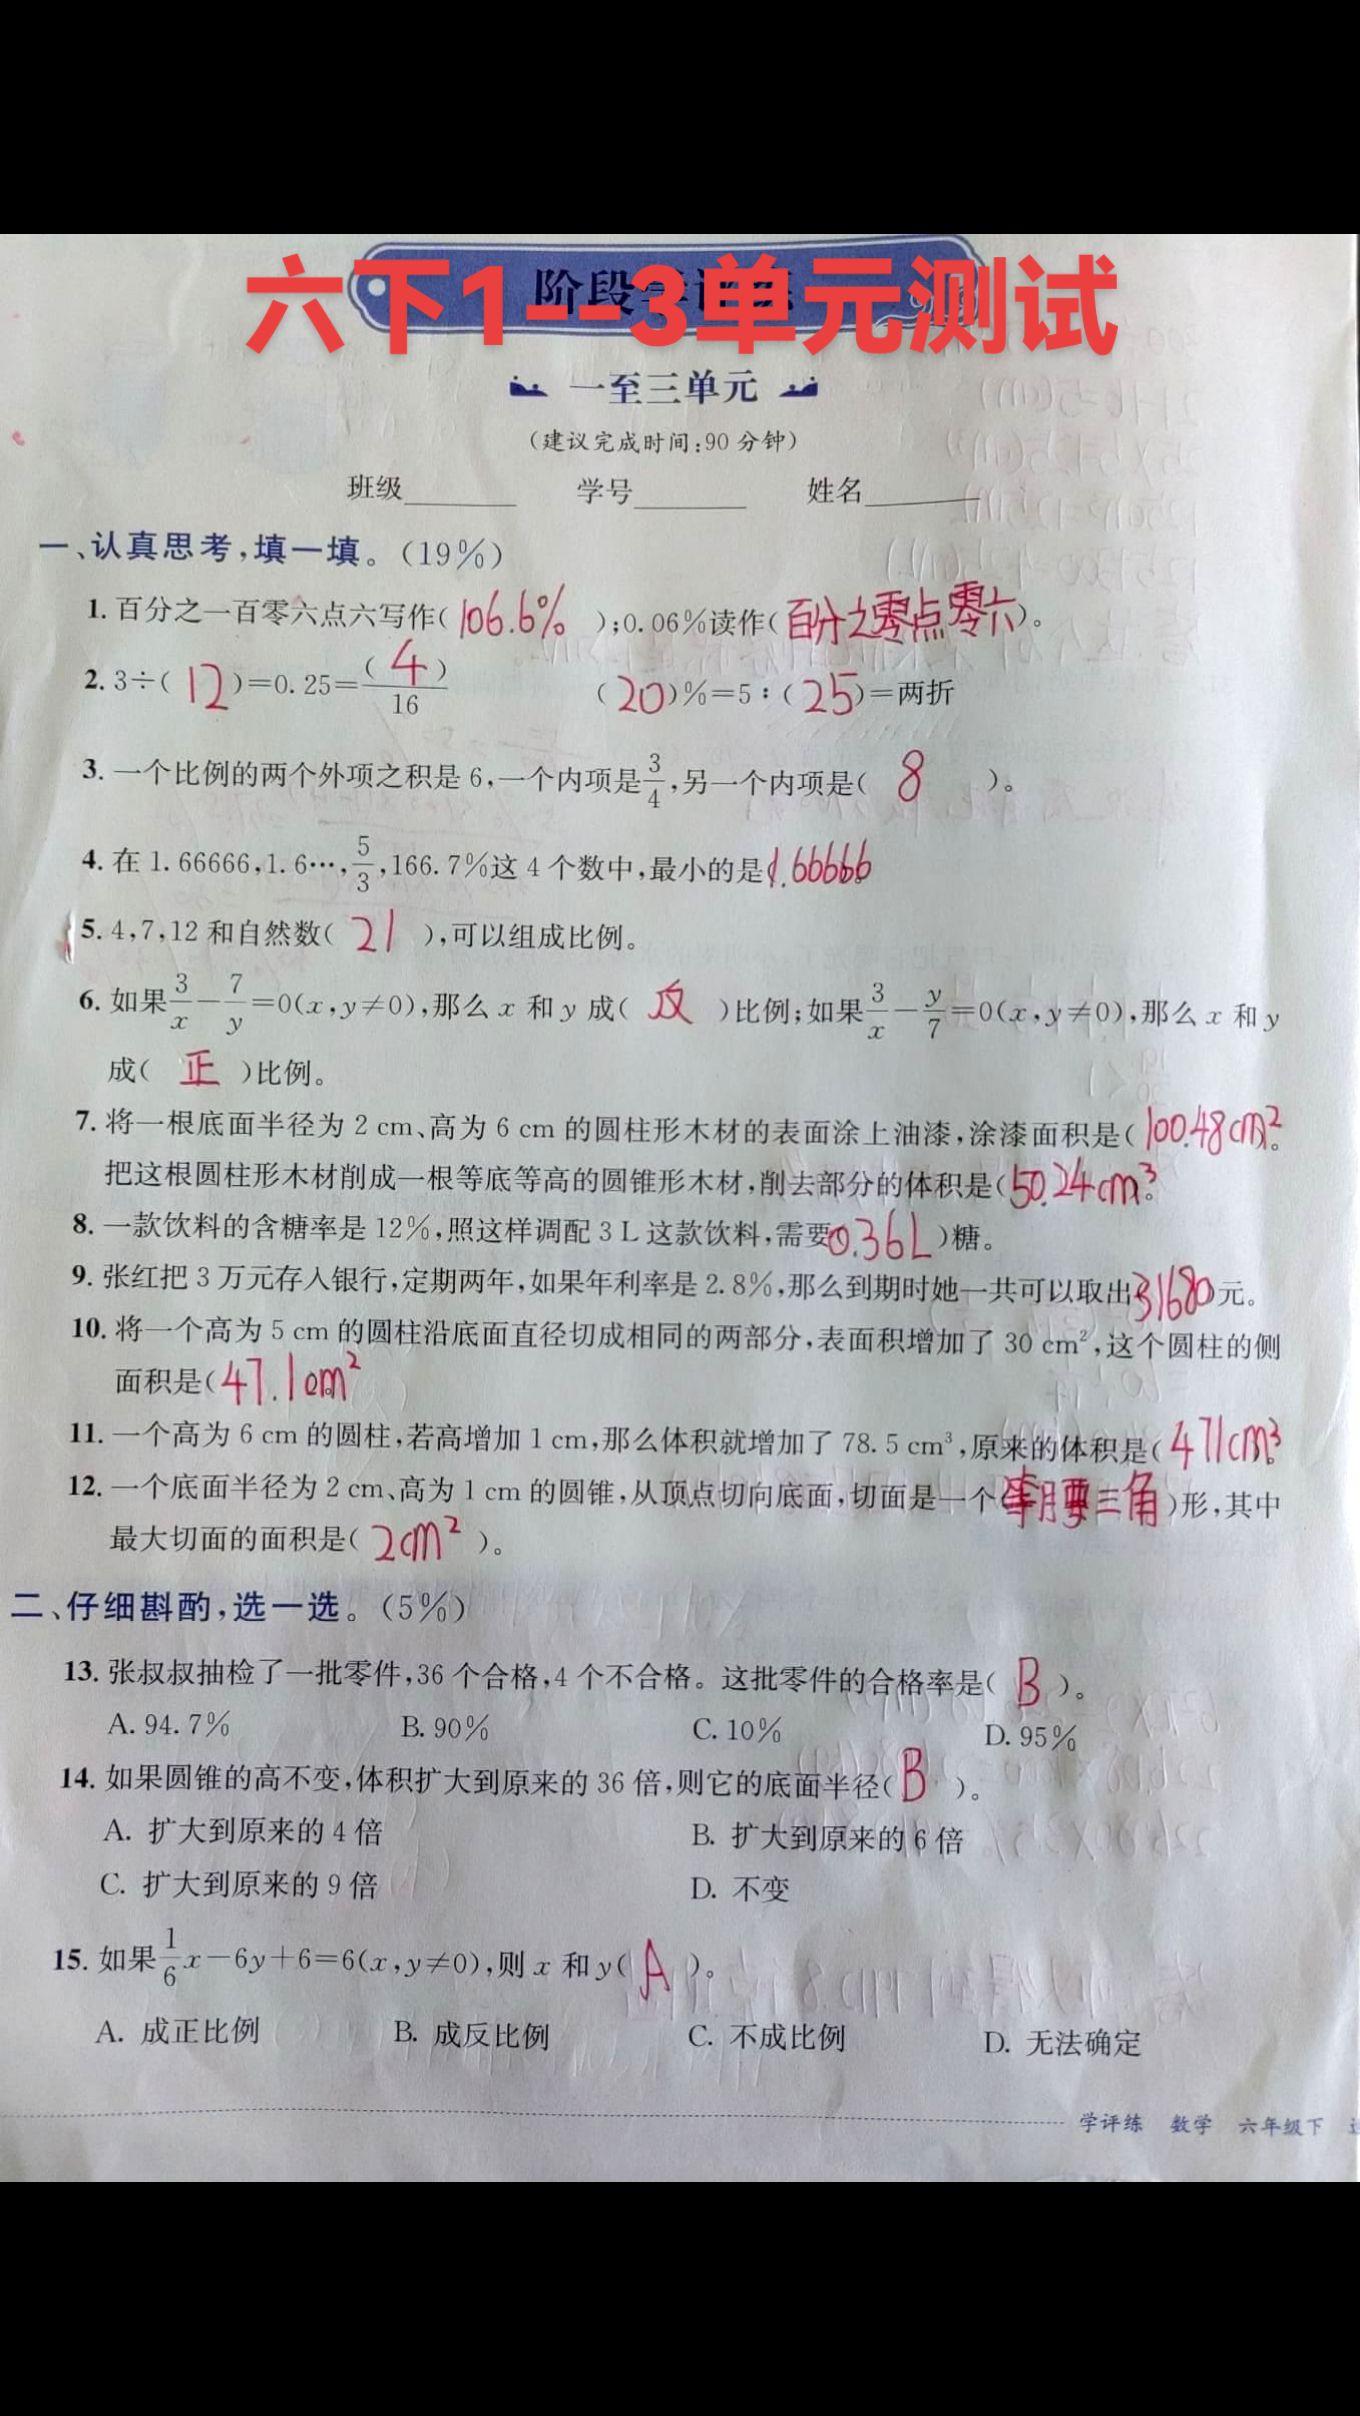 六下1--3单元测试
阶段
一至三单元
(建议完成时间:90分钟)
班级______ 学号______ 姓名______
一、认真思考,填一填。(19%)
1. 百分之一百零六点六写作(106.6%);0.06%读作(百分之零点零六)。
2. 3÷(12)=0.25=(4)/16 (20)%=5:(25)=两折
3. 一个比例的两个外项之积是6,一个内项是3/4,另一个内项是(8)。
4. 在1.66666,1.6…,5/3,166.7%这4个数中,最小的是(1.66666
5. 4,7,12和自然数(21),可以组成比例。
6. 如果3/x-7/y=0(x,y≠0),那么x和y成(反)比例;如果3/x-y/7=0(x,y≠0),那么x和y
成(正)比例。
7. 将一根底面半径为2 cm、高为6 cm的圆柱形木材的表面涂上油漆,涂漆面积是(100.48cm²。
把这根圆柱形木材削成一根等底等高的圆锥形木材,削去部分的体积是(50.24cm³。
8. 一款饮料的含糖率是12%,照这样调配3 L这款饮料,需要0.36L)糖。
9. 张红把3万元存入银行,定期两年,如果年利率是2.8%,那么到期时她一共可以取出31680)元。
10. 将一个高为5 cm的圆柱沿底面直径切成相同的两部分,表面积增加了30 cm²,这个圆柱的侧
面积是(47.1cm²
11. 一个高为6 cm的圆柱,若高增加1 cm,那么体积就增加了78.5 cm³,原来的体积是(471cm³。
12. 一个底面半径为2 cm、高为1 cm的圆锥,从顶点切向底面,切面是一个(等腰三角)形,其中
最大切面的面积是(2cm²)。
二、仔细斟酌,选一选。(5%)
13. 张叔叔抽检了一批零件,36个合格,4个不合格。这批零件的合格率是(B)。
A. 94.7% B. 90% C. 10% D. 95%
14. 如果圆锥的高不变,体积扩大到原来的36倍,则它的底面半径(B)。
A. 扩大到原来的4倍 B. 扩大到原来的6倍
C. 扩大到原来的9倍 D. 不变
15. 如果1/6x-6y+6=6(x,y≠0),则x和y(A)。
A. 成正比例 B. 成反比例 C. 不成比例 D. 无法确定
学评练 数学 六年级下